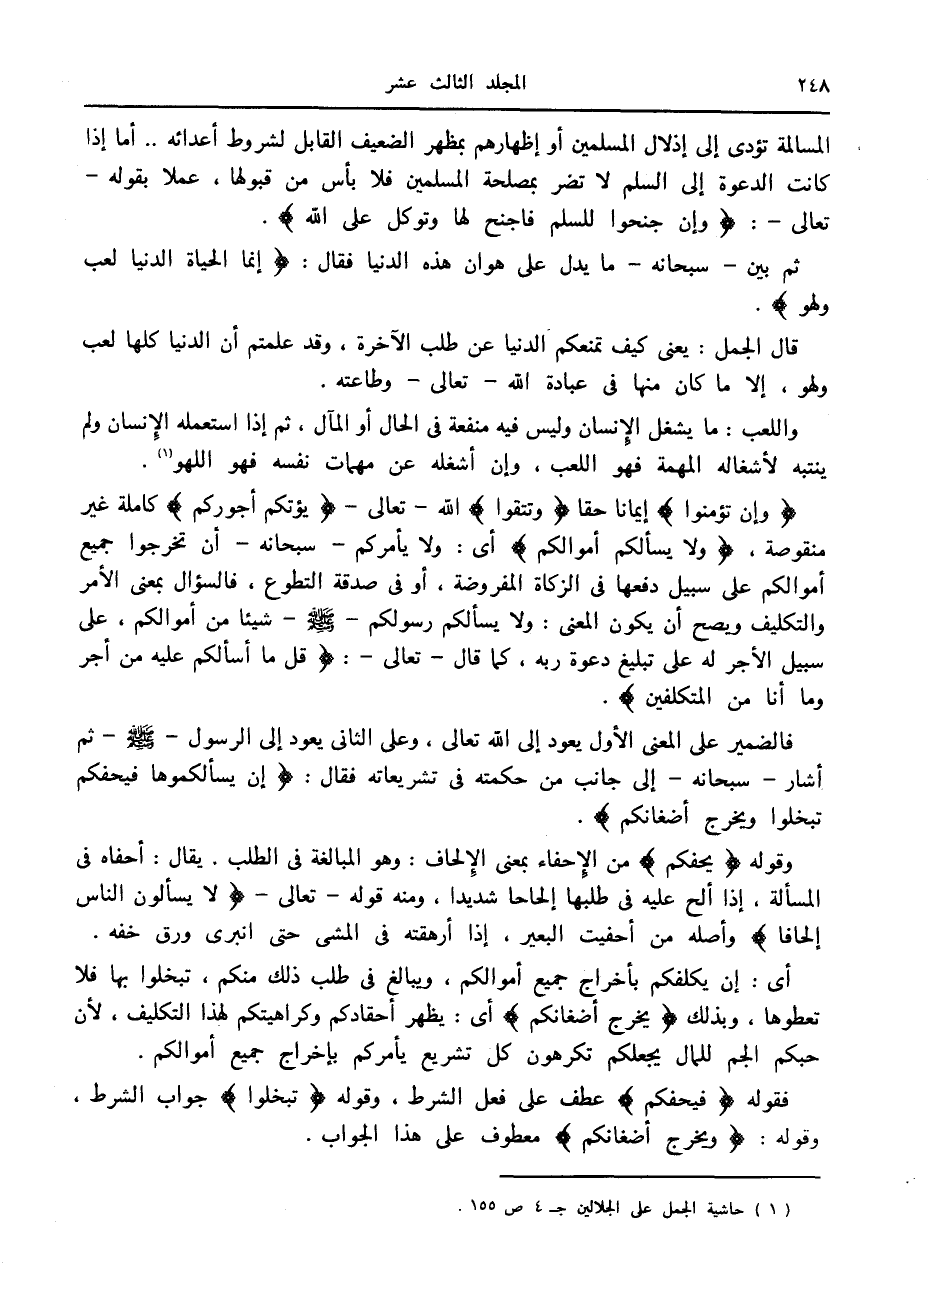 ٢٤٨
المجلد الثالث عشر
المسالمة تؤدى إلى إذلال المسلمين أو إظهارهم بمظهر الضعيف القابل لشروط أعدائه .. أما إذا
كانت الدعوة إلى السلم لا تضر بمصلحة المسلمين فلا بأس من قبولها ، عملا بقوله –
تعالى – : ﴿ وإن جنحوا للسلم فاجنح لها وتوكل على الله ﴾ .
ثم بين – سبحانه – ما يدل على هوان هذه الدنيا فقال : ﴿ إنما الحياة الدنيا لعب
ولهو ﴾ .
قال الجمل : يعنى كيف تمنعكم الدنيا عن طلب الآخرة ، وقد علمتم أن الدنيا كلها لعب
ولهو ، إلا ما كان منها فى عبادة الله – تعالى – وطاعته .
واللعب : ما يشغل الإنسان وليس فيه منفعة فى الحال أو المآل ، ثم إذا استعمله الإنسان ولم
ينتبه لأشغاله المهمة فهو اللعب ، وإن أشغله عن مهمات نفسه فهو اللهو(١) .
﴿ وإن تؤمنوا ﴾ إيمانا حقا ﴿ وتتقوا ﴾ الله – تعالى – ﴿ يؤتكم أجوركم ﴾ كاملة غير
منقوصة ، ﴿ ولا يسألكم أموالكم ﴾ أى : ولا يأمركم – سبحانه – أن تخرجوا جميع
أموالكم على سبيل دفعها فى الزكاة المفروضة ، أو فى صدقة التطوع ، فالسؤال بمعنى الأمر
والتكليف ويصح أن يكون المعنى : ولا يسألكم رسولكم – ﷺ – شيئا من أموالكم ، على
سبيل الأجر له على تبليغ دعوة ربه ، كما قال – تعالى – : ﴿ قل ما أسألكم عليه من أجر
وما أنا من المتكلفين ﴾ .
فالضمير على المعنى الأول يعود إلى الله تعالى ، وعلى الثانى يعود إلى الرسول – ﷺ – ثم
أشار – سبحانه – إلى جانب من حكمته فى تشريعاته فقال : ﴿ إن يسألكموها فيحفكم
تبخلوا ويخرج أضغانكم ﴾ .
وقوله ﴿ يحفكم ﴾ من الإحفاء بمعنى الإلحاف : وهو المبالغة فى الطلب . يقال : أحفاه فى
المسألة ، إذا ألح عليه فى طلبها إلحاحا شديدا ، ومنه قوله – تعالى – ﴿ لا يسألون الناس
إلحافا ﴾ وأصله من أحفيت البعير ، إذا أرهقته فى المشى حتى انبرى ورق خفه .
أى : إن يكلفكم بأخراج جميع أموالكم ، ويبالغ فى طلب ذلك منكم ، تبخلوا بها فلا
تعطوها ، وبذلك ﴿ يخرج أضغانكم ﴾ أى : يظهر أحقادكم وكراهيتكم لهذا التكليف ، لأن
حبكم الجم للمال يجعلكم تكرهون كل تشريع يأمركم بإخراج جميع أموالكم .
فقوله ﴿ فيحفكم ﴾ عطف على فعل الشرط ، وقوله ﴿ تبخلوا ﴾ جواب الشرط ،
وقوله : ﴿ ويخرج أضغانكم ﴾ معطوف على هذا الجواب .
( ١ ) حاشية الجمل على الجلالين جـ ٤ ص ١٥٥ .